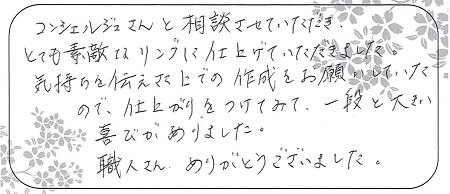 コンシェルジュさんと相談させていただき、
とても素敵なリングに仕上げていただきました。
気持ちを伝えた上での作成をお願いしていた
ので、仕上がりをつけてみて、一段と大きい
喜びがありました。
職人さん、ありがとうございました。